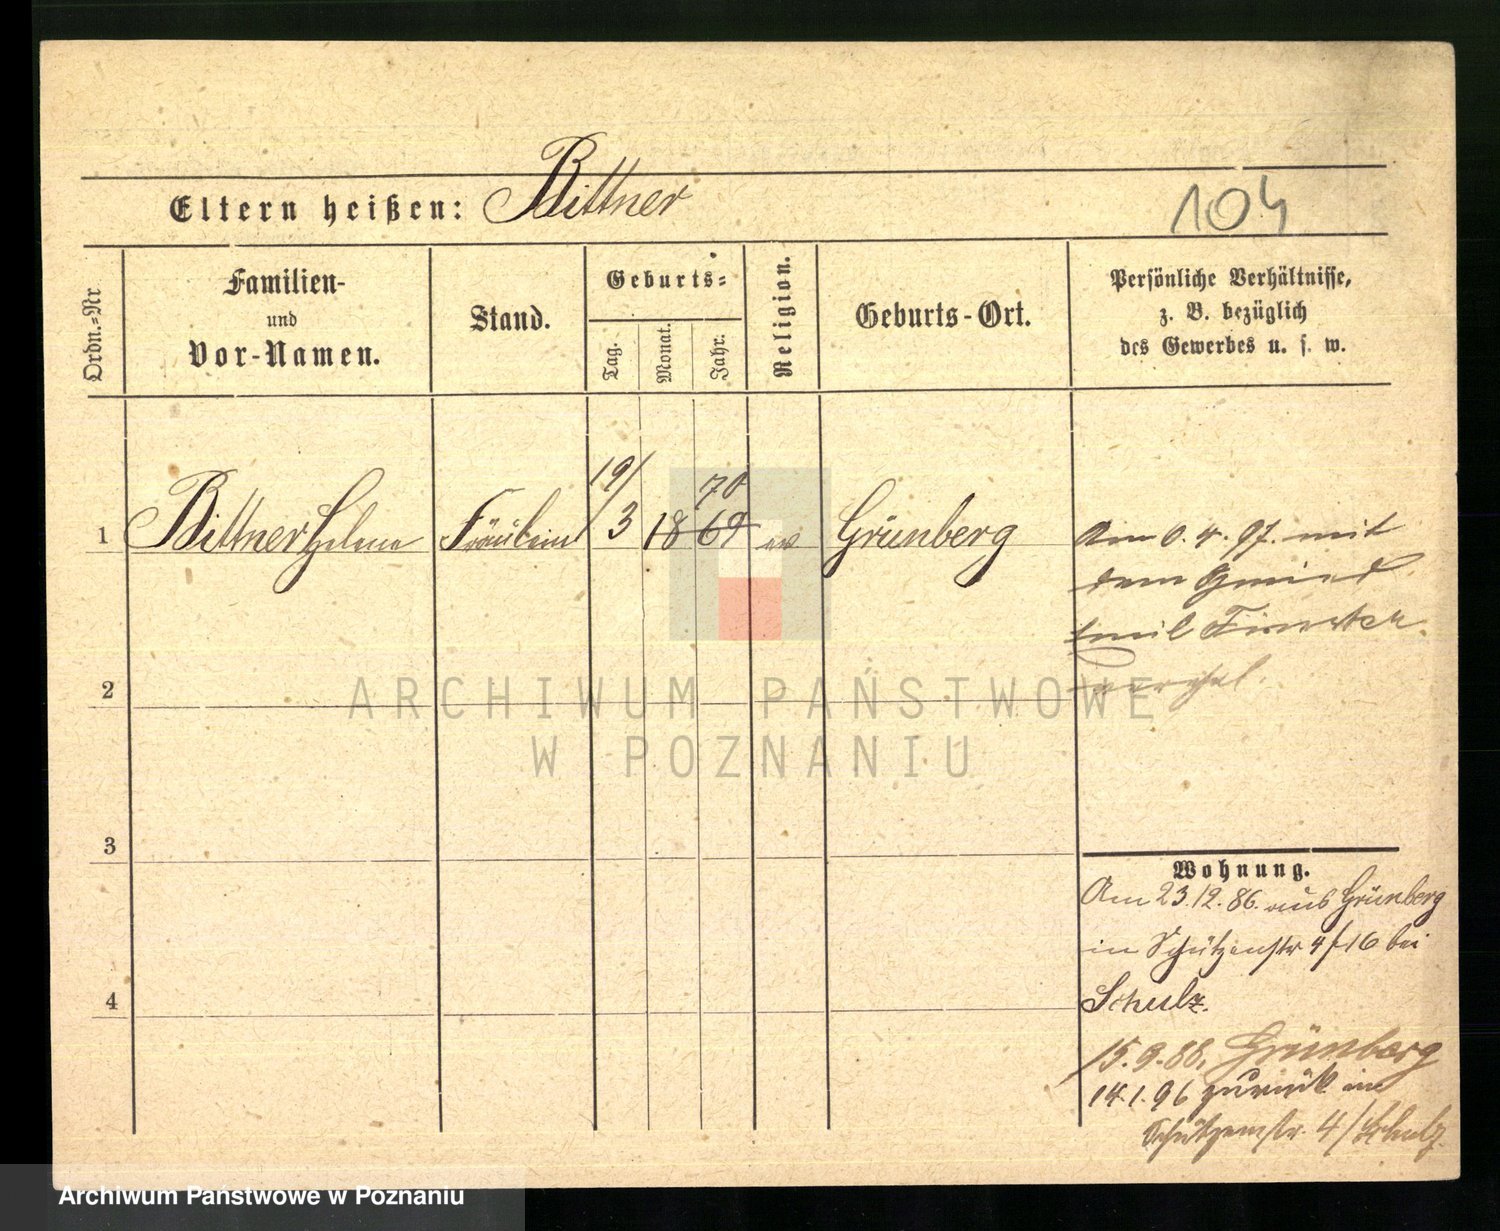 Eltern heißen: Bittner
104
Ordn.-Nr
Familien-
und
Vor-Namen.
Stand.
Geburts-
Tag.
Monat.
Jahr.
Religion.
Geburts-Ort.
Persönliche Verhältnisse,
z. B. bezüglich
des Gewerbes u. s. w.
1 Bittner Helene Fräulein 19/3 1869 70 ev Grünberg
Am 6. 4. 97. mit
dem
Emil
2
3
4
Wohnung.
Am 23.12.86. aus Grünberg
in Schützenstr 4/16 bei
Schulz.
15.9.88, Grünberg
14.1.96 zurück in
Schützenstr. 4/Schulz.
ARCHIWUM PAŃSTWOWE
W POZNANIU
Archiwum Państwowe w Poznaniu